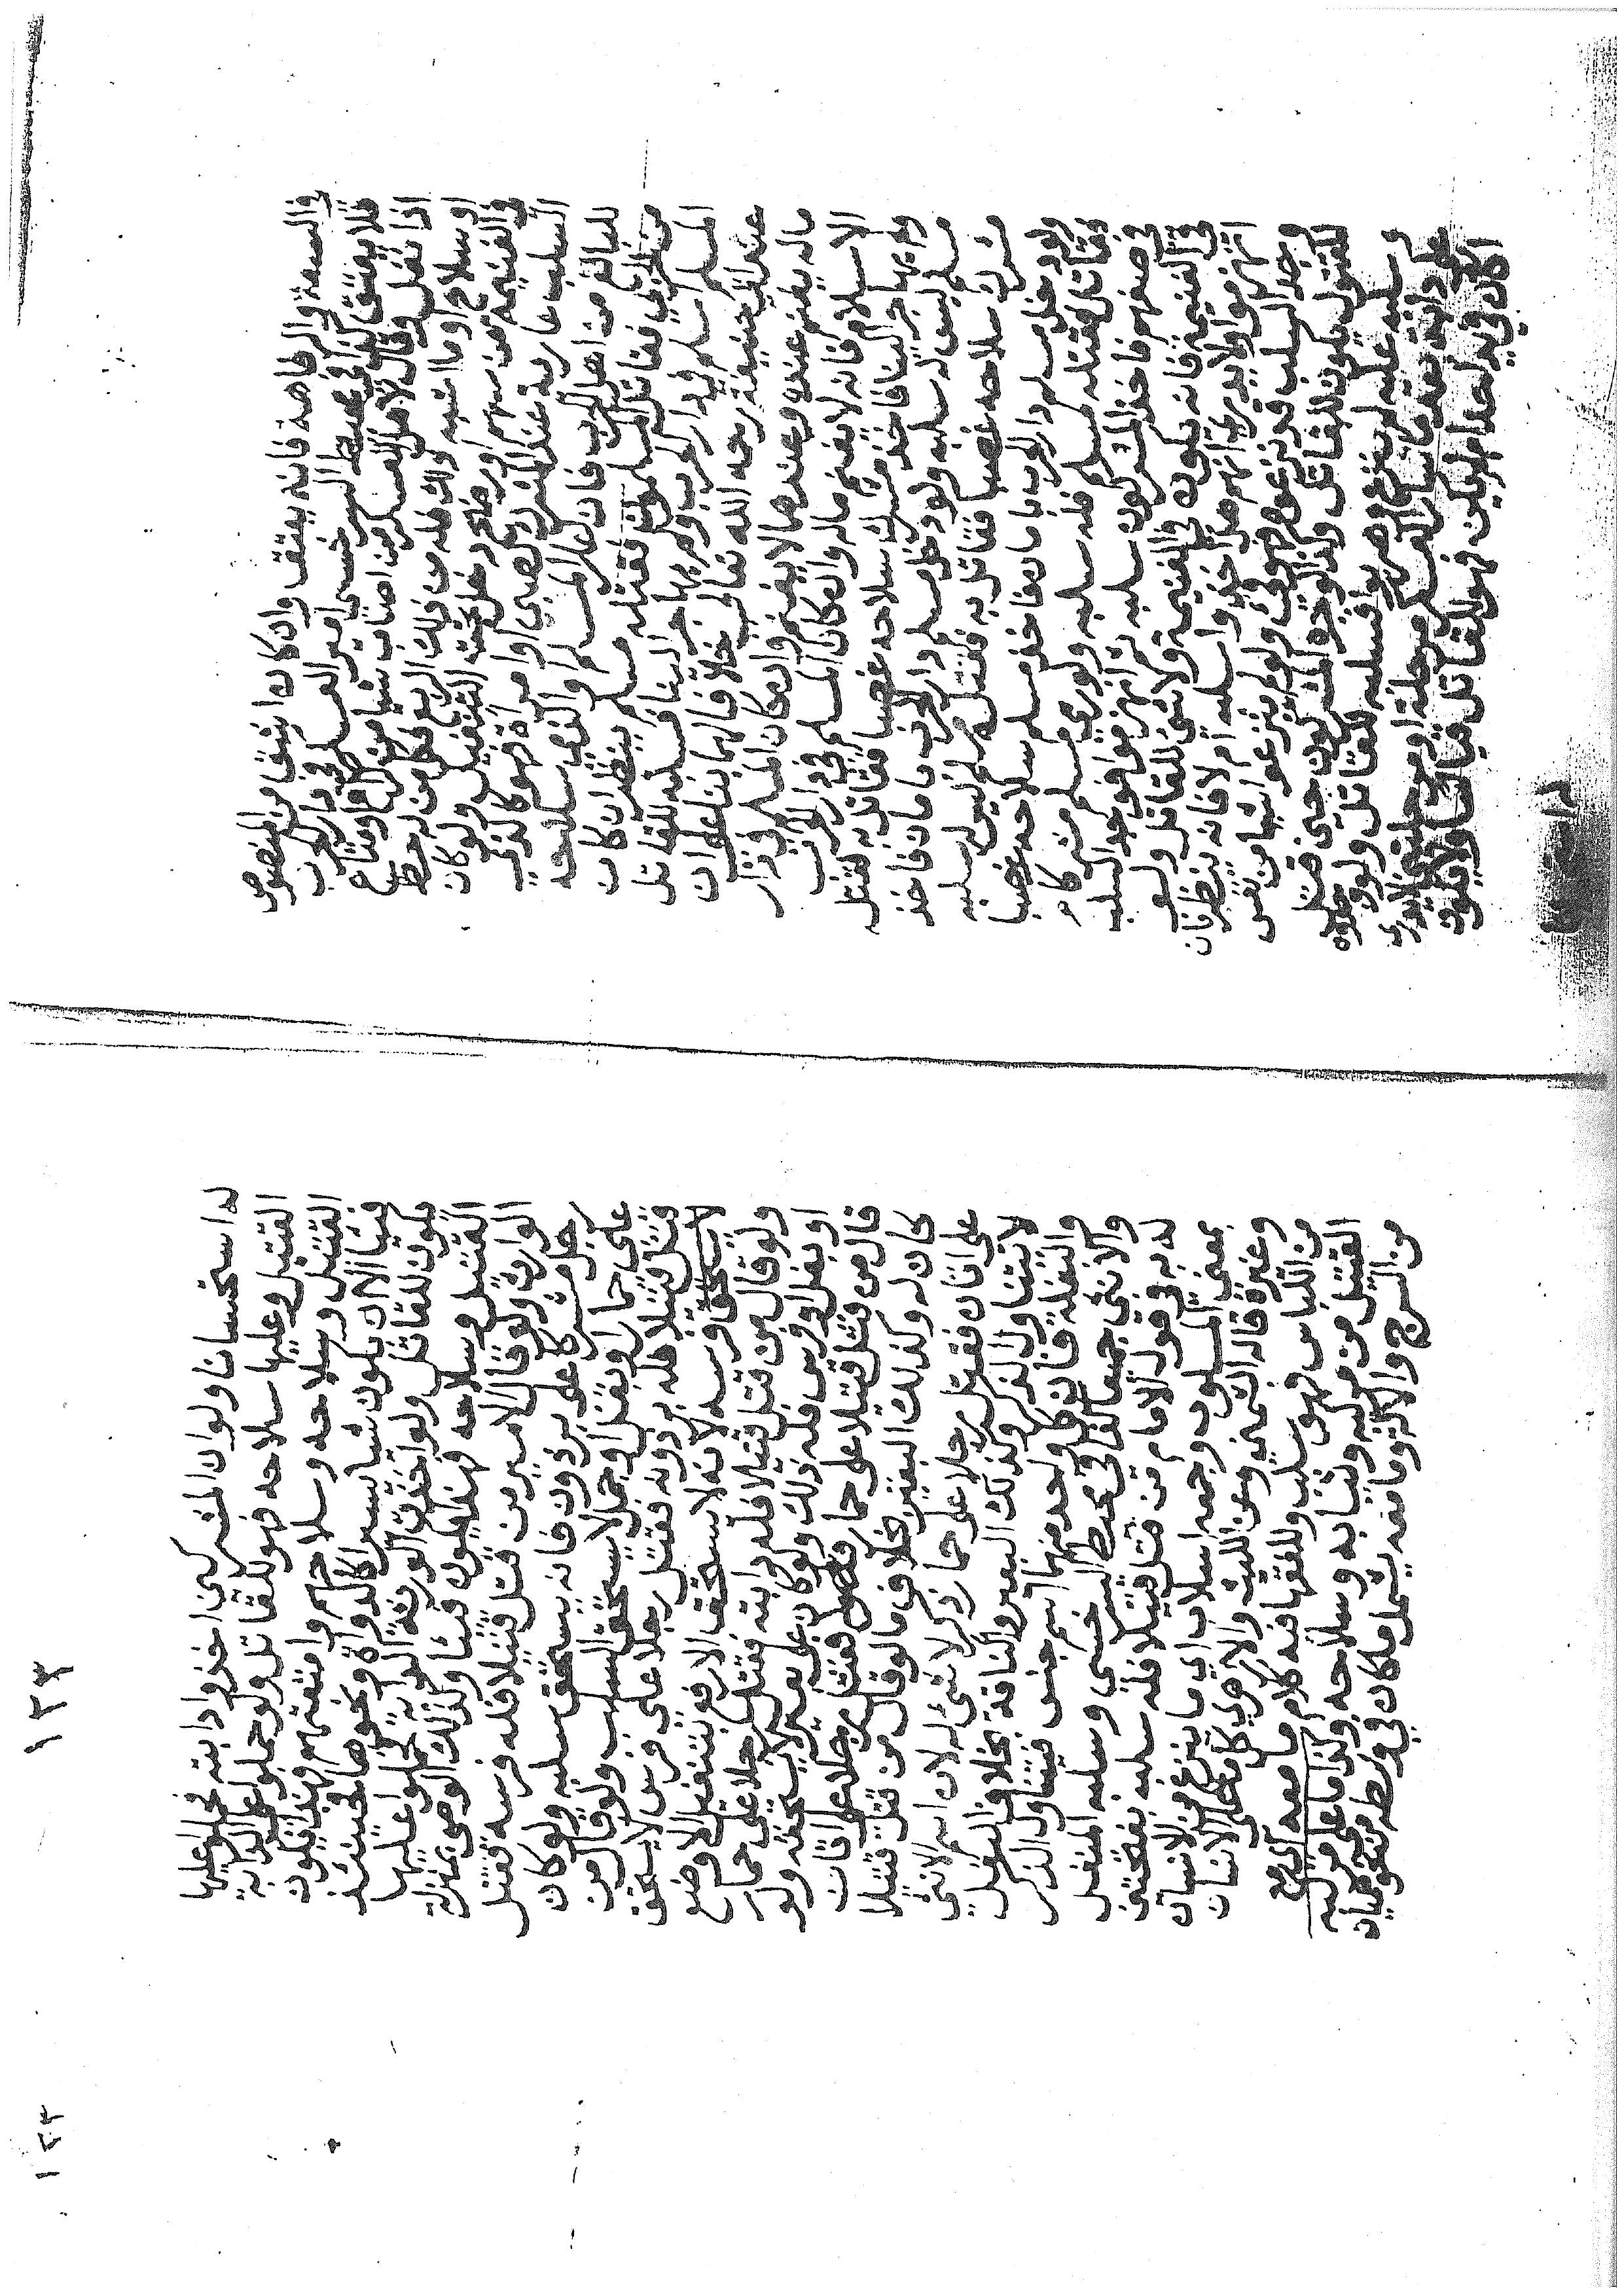 فلا يعتق كذا في محيط السرخسي امير العسكر في دار الحرب
اذا نفل وقال لاهل العسكر من اصاب شيئا من كراع او متاع
او سلاح او ما اشبه ذلك فله من ذلك الربع فكل من له حظ
في الغنيمة من سهم او رضخ دخل تحت التنفيل ولو كان
السلب عارية عند المشرك لصبي او امرأة فهو كالذي
للبالغ من اهل الحرب فان اعار المسلم او الذمي سلاحه
من الحربي فقاتل المسلمون فقتله مسلم ينظر ان كان
المسلم اسلم في دار الحرب ولم يهاجر الينا فسلبه للقاتل
عند ابي حنيفة رحمه الله تعالى خلافا لهما بناء على ان
ماله يغنم عنده وعندهما لا يغنم وان كان المسلم في دار
الاسلام فانه لا يغنم ماله وان كان المسلم في دار الحرب
ولم يهاجر الينا فاخذ مشرك سلاحه غصبا فقاتل به فقتله
مسلم ليس له سلبه ولو دخل مسلم دار الحرب بامان فاخذ
مشرك سلاحه غصبا فقاتل به فقتله مسلم ليس له سلبه
ولو دخل مسلم دار الحرب بامان فاخذ مسلم سلاحه غصبا
فقاتل فقتله مسلم فله سلبه ولو رمى مسلم مشركا
في صفهم فاخذ المشركون سلبه ثم انهزموا فوجد السلب
في الغنيمة فانه يكون في الغنيمة ولا شيء للقاتل ولو
انهزموا ولا يدري انهم هل اخذوا سلبه ام لا فانه ينظر فان
وجد السلب قد نزع عنه فهو فيء ولو لم ينزعوا شيئا من نفس
المقتول يكون للقاتل ولو جره المشركون حين قتل
وسلبه عليه لم ينزع فسلبه للقاتل ولو وجدوه
على دابة بعد ما سار العسكر مرحلة او مرحلتين لا يدري
اكان في يد احد ام لم يكن فهو للقاتل قياسا ولا يكون
له استحسانا ولو ان المشركين اخذوا دابته فحملوا عليها
القتيل وعليها سلاحه فهو للقاتل ولو حملوا على الدابة
القتيل وسلاحه وسلاحهم وامتعتهم فهذا يكون
فيئا الا ان يكون شيئا يسيرا كالدواة ونحوها فحينئذ
يكون للقاتل ولو اخذت الورثة الدابة فحملوا عليها
القتيل وسلاحه فهذا يكون فيئا وكذلك الوصي بمنزلة
الوارث ولو قال الامير من قتل قتيلا فله فرسه فقتل
رجل مشركا على برذون فانه يستحق سلبه ولو كان
على حمار او بغل او جمل لا يستحق السلب ولو قال من
قتل قتيلا فله برذونه فقتل رجلا على فرس لا يستحق
لا يستحق فرسه لانه لا يستحق الارفع بتنفيل الاوضع
ولو قال من قتل قتيلا فله دابته فقتل رجلا على حمار
او بغل او فرس فله ذلك ولو كان على بعير لا يستحقه ولو
قال من قتل قتيلا على حمار فقتل رجلا على اتان
كان له وكذلك البغل بخلاف ما لو قال من قتل قتيلا
على اتان فقتل رجلا على حمار ذكر لا شيء له لان اسم الانثى
لا يتناول الذكر وكذلك البعير والناقة بخلاف البغل
والبغلة فان كل واحد منهما اسم جنس فيتناول الذكر
والانثى جميعا كذا في محيط السرخسي وسلبه المنفل
له به في قول الامام من قتل قتيلا فله سلبه بفتحتين
بمعنى المسلوب وجمعه اسلاب اي ما ينزع من الانسان
وغيره قاله الشمني وعن الليث والازهري كل ما على الانسان
من اللباس فهو سلب وللفقهاء فيه كلام ما معه اي مع
القتيل من مركبه وثيابه وسلاحه وكذا ما على مركبه
من السرج والآلة وما معه يشمل ما كان في وسطه من نحو هميان
١٢٣
١٢٣